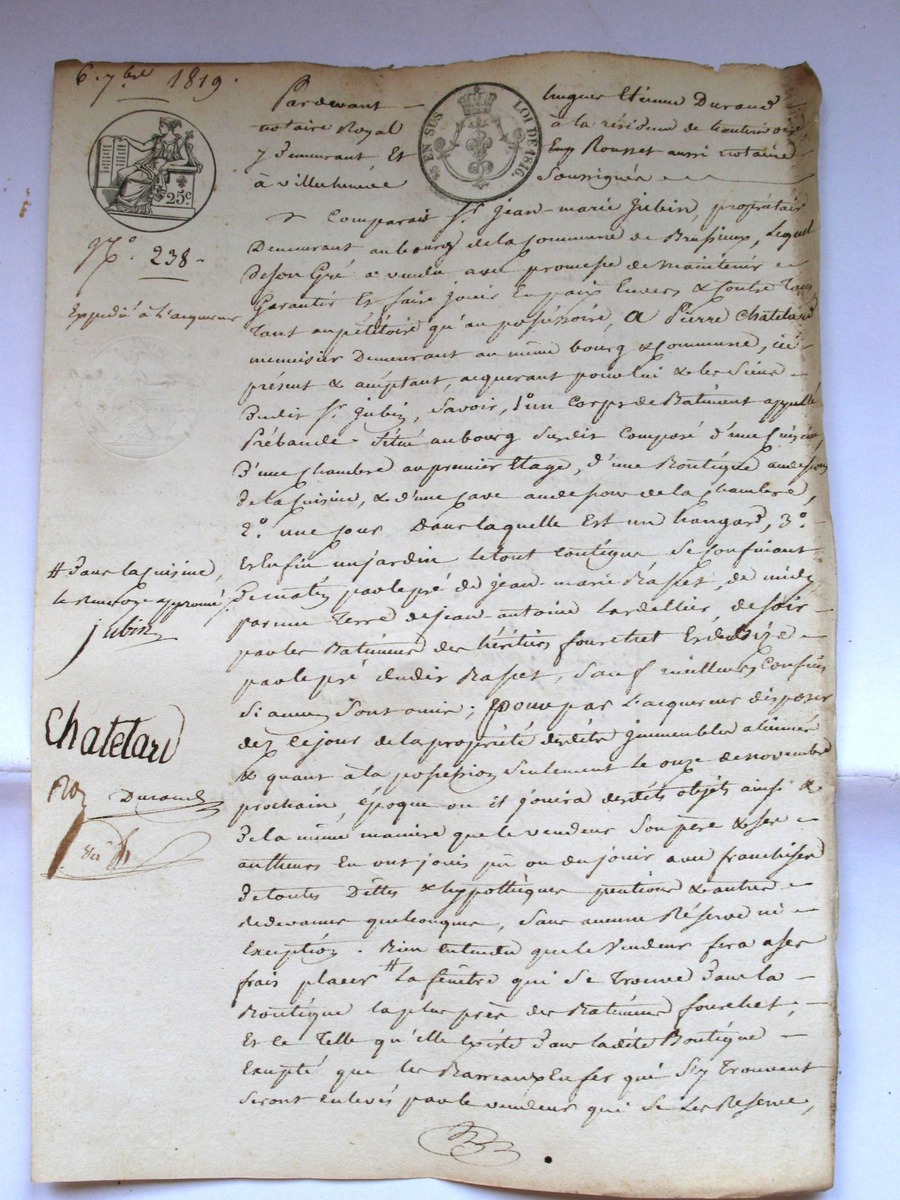 6. 7bre 1819.
Pardevant hugues Etienne Durand
notaire Royal à la résidence de
y demeurant Et Rousset aussi notaire
à villechenève Soussignés
EN SUS LOI DE 1816.
25c
N.o 238
Expédié à L'acquereur
Comparait Sr. Jean-marie Jubin, propriétaire
Demeurant au bourg de la Commune de Brussieux, Lequel
De son Gré a vendu avec promesse de maintenir
Garantir Et faire jouir En paix Envers & Contre Tous
Tant au pétitoire qu'au possessoire, A Pierre Chatelard
menuisier Demeurant au même bourg & Commune, ici
présent & acceptant, acquerant pour lui & les Siens
Dudit Sr. Jubin, Savoir, 1o un Corps de Batiment appellé
Prébande Situé au bourg Susdit Composé d'une Cuisine
D'une Chambre au premier Etage, d'une Boutique au dessous
De la Cuisine, & d'une Cave au dessous de la Chambre,
2o. une Cour Dans laquelle Est un hangard, 3o.
Et Enfin un jardin le tout Contigue Se Confinant
De matin par le pré de Jean-marie Rasset, de midy
par une Terre de Jean-antoine Lardellier de Soir
par les Batiments des héritiers fourchet Et de bize
par le pré dudit Rasset, Sauf meilleurs Confins
Si aucuns Sont omis; pour par L'acquereur disposer
dez Ce jour de la propriété desdits Immeubles
& quant à la possession Seulement le onze de novembre
prochain époque où il jouira desdits objets ainsi &
De la même maniere que le vendeur Son père & Ses
autheurs En ont joui pu ou du jouir avec franchise
De toutes Dettes & hypothèques pentions & autres
redevances quelconques, Sans aucune Réserve ni
Exception. Bien entendu que le Vendeur fera à Ses
frais placer # la fenêtre qui Se Trouve dans la
Boutique la plus près des Batiments fourchet,
Et Ce Telle qu'elle Existe dans ladite Boutique
Excepté que les Barreaux En fer qui S'y Trouvent
Seront Enlevés par le vendeur qui Se Les Reserve,
# dans la Cuisine,
le Renvoy approuvé
jubin
Chatelard
Durand